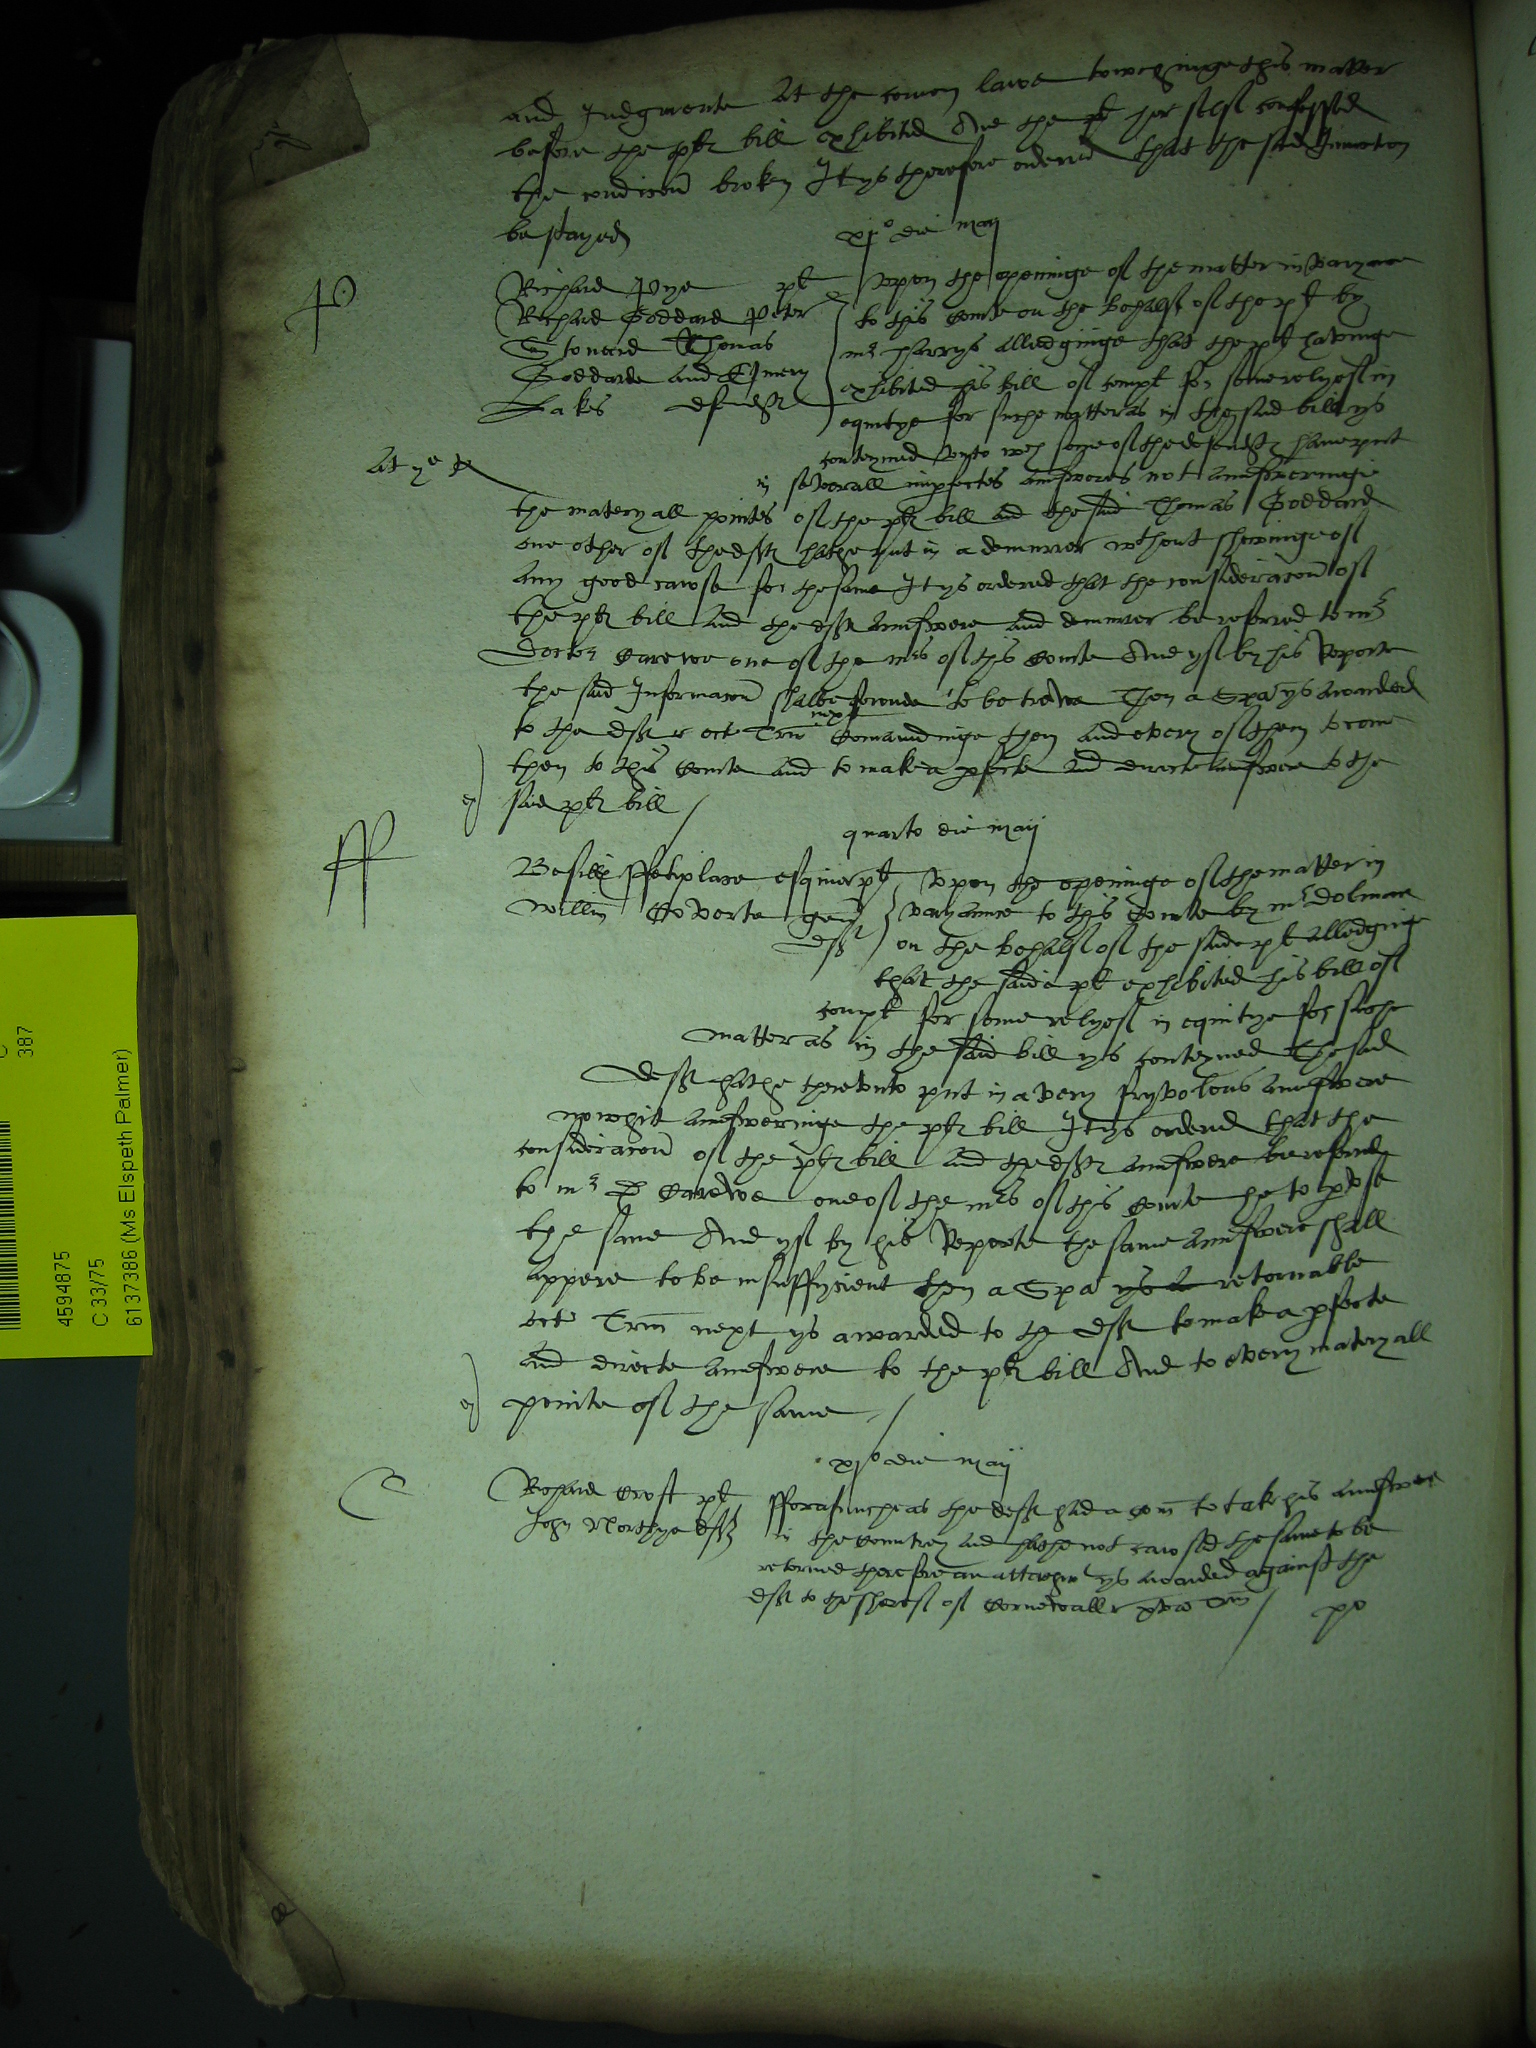 and Judgmente At the comon lawe towchinge this matter
before the plt bill exhibited And the plt her self confessed
the condicion broken It ys therefore ordered that the said Iniuncton
be stayed
xjo die maij
P
Richard Pye plt
Richard Goddard Peter
Stonerd Thomas
Goddarde and Emery
Lakes defendtes
Vpon the openinge of the matter in varyance
to this Courte on the behalf of the plt by
mr harrys alledginge that the plt havinge
exhibited his bill of complt for some relyef in
equitye for suche matter as in the said bill ys
conteyned vnto wch some of the defendtes have put
in severall imperfectes aunsweres not aunsweringe
At ye
the materyall pointes of the plt bill and the said Thomas Goddard
one other of the deftes hathe put in a demurrer without shewinge of
any good cawse for the same It ys ordered that the consideracion of
the plt bill and the deftes aunswere and demurrer be referred to mr
Doctor Carewe one of the mrs of this Courte And yf by his Reporte
the said Informacion shalbe founde to be trewe Then a Spa ys awarded
next
to the deftes r oct Trin Comaundinge them and every of them to come
then to this Courte and to make a pfecte and directe aunswere to the
said plt bill /
quarto die maij
ff
Besill ffetiplace esquier plt
Willm Coverte gen
deft
Vpon the openinge of the matter in
varyaunce to this Courte by mr dolman
on the behalf of the said plt alledginge
that the said plt exhibited his bill of
complt for some relyef in equitye for suche
matter as in the said bill ys conteyned The said
deft hathe therevnto put in a very fryvolous aunswere
no whit aunsweringe the plt bill It ys ordered that the
consideracion of the plt bill and the deftes aunswere be referred
to mr D Carewe one of the mrs of this Courte he to pvse
the same And yf by his Reporte the same aunswere shall
appere to be insuffycient then a Spa ys retornable
octe Trin next ys awarded to the deft to make a pfecte
and directe aunswere to the plt bill And to every materyall
pointe of the same /
xjo die maij
C
Richard Croft plt
John Northye deft
fforasmuche as the deft had a com to take his aunswere
in the Countrey and hathe not cawsed the same to be
retorned therefore an attachmt ys awarded against the
deft to the Sheref of Cornewall r
po
4594875
C 33/75
387
6137386 (Ms Elspeth Palmer)